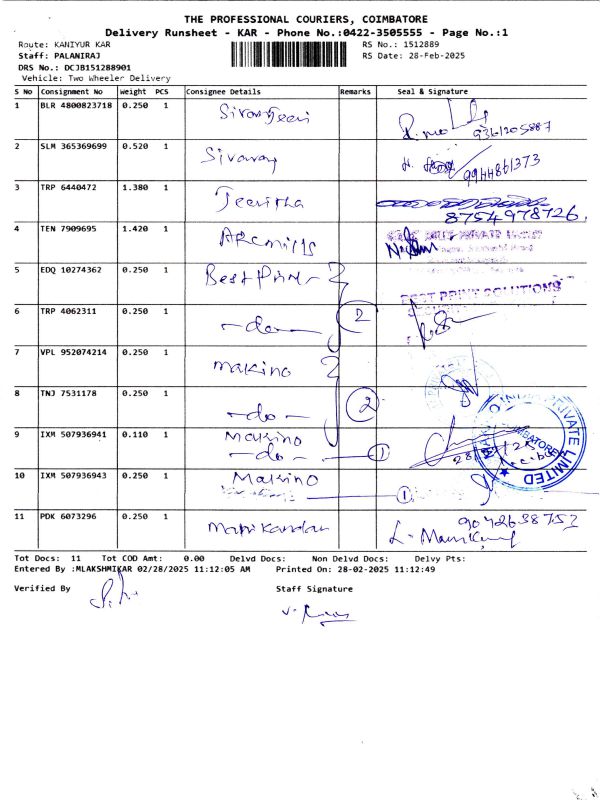 THE PROFESSIONAL COURIERS, COIMBATORE
Delivery Runsheet - KAR - Phone No.:0422-3505555 - Page No.:1
Route: KANIYUR KAR
RS No.: 1512889
Staff: PALANIRAJ
RS Date: 28-Feb-2025
DRS No.: DCJB151288901
Vehicle: Two Wheeler Delivery
S No Consignment No Weight PCS Consignee Details Remarks Seal & Signature
1 BLR 4800823718 0.250 1 9361205887
2 SLM 365369699 0.520 1 Sivaraj 9944861373
3 TRP 6440472 1.380 1 Jeevitha 8754978726.
4 TEN 7909695 1.420 1
5 EDQ 10274362 0.250 1 Best Print BEST PRINT SOLUTIONS
6 TRP 4062311 0.250 1 -do- 2
7 VPL 952074214 0.250 1 Makino
8 TNJ 7531178 0.250 1 -do- 2
9 IXM 507936941 0.110 1 Makino
-do- 1
10 IXM 507936943 0.250 1 Makino
1
11 PDK 6073296 0.250 1 Manikandan 9042638752
L. Manikandan
PRIVATE LIMITED
COIMBATORE
Tot Docs: 11 Tot COD Amt: 0.00 Delvd Docs: Non Delvd Docs: Delvy Pts:
Entered By :MLAKSHMIKAR 02/28/2025 11:12:05 AM Printed On: 28-02-2025 11:12:49
Verified By Staff Signature